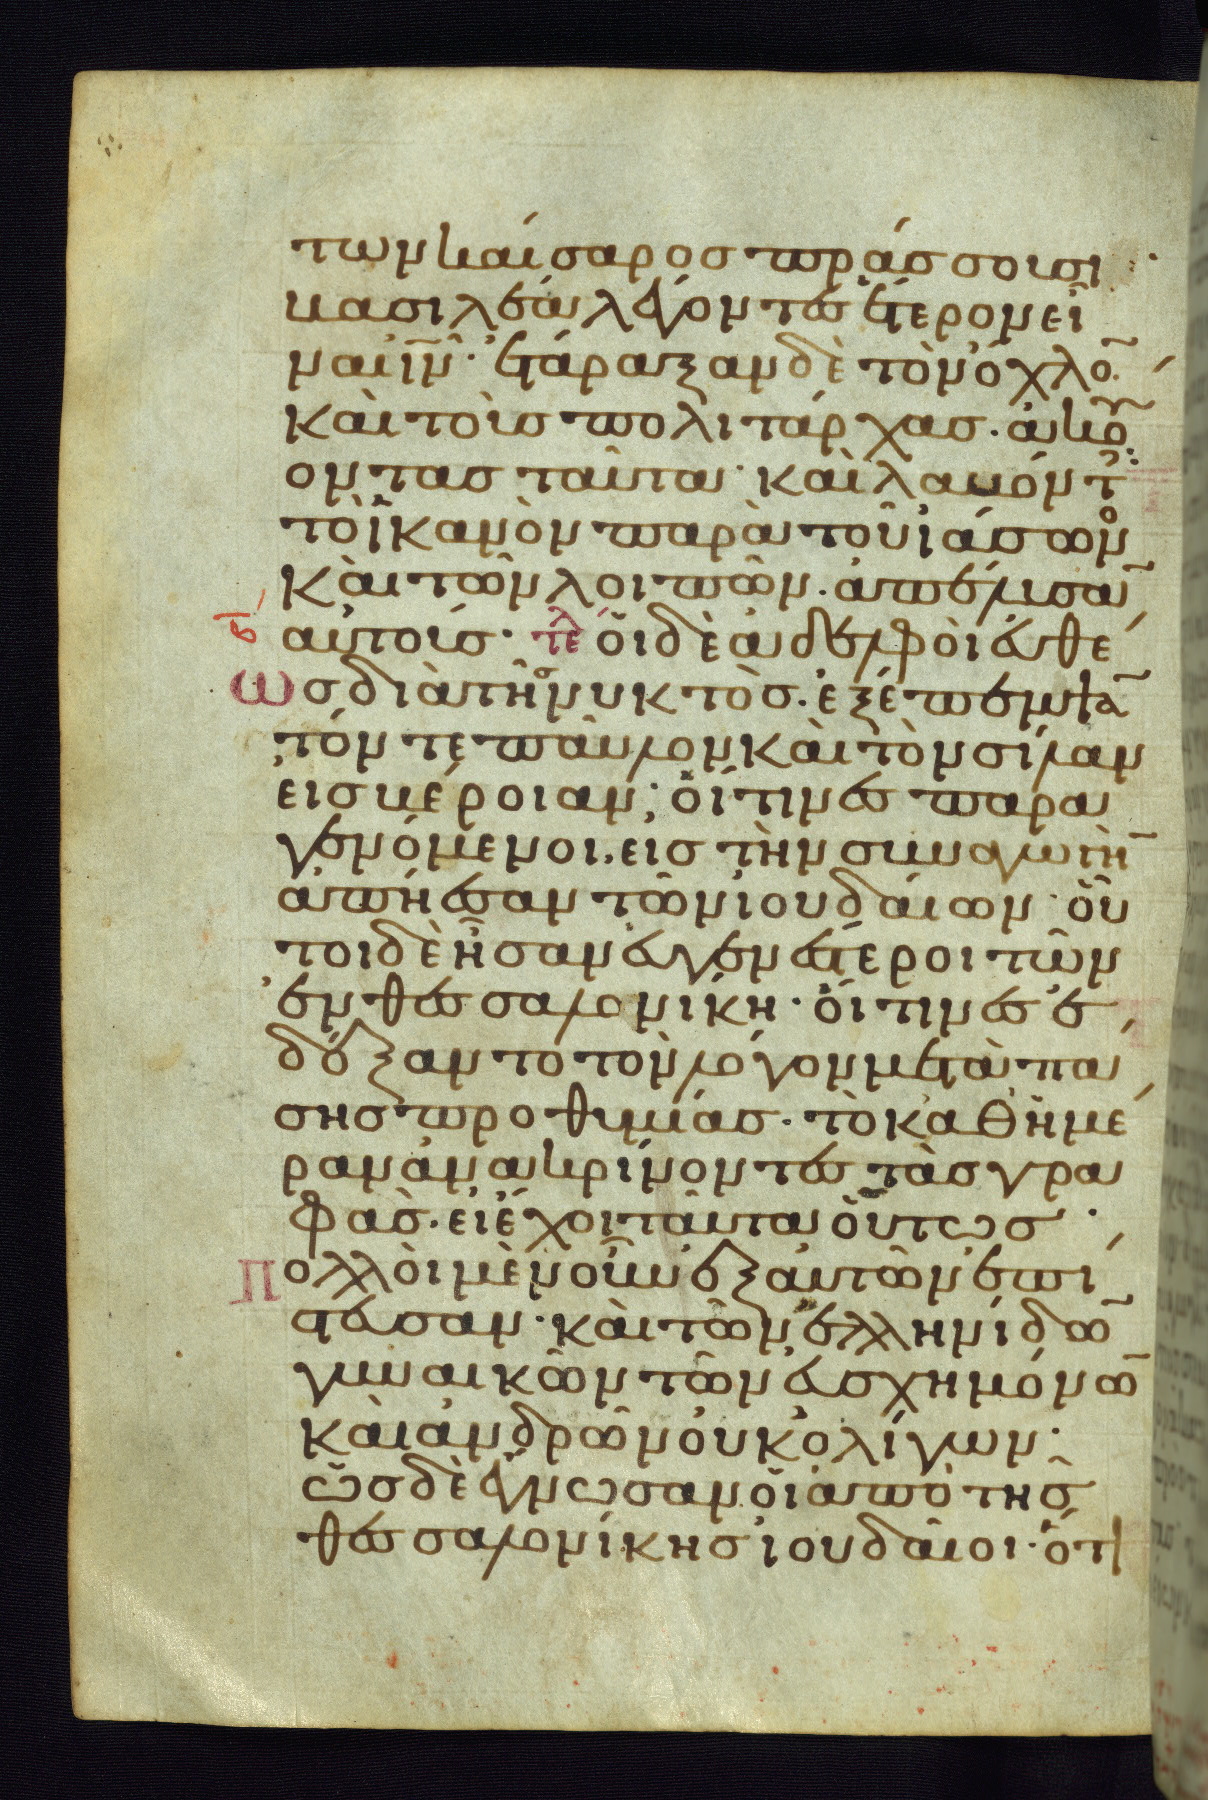 των καίσαρος πράσσουσι
βασιλέα λέγοντες ἕτερον εἶ
ναι ἰν̅· ἐτάραξαν δὲ τὸν ὄχλο̅
καὶ τοὺς πολιτάρχας· ἀκού
οντας ταῦτα· καὶ λαβόντ
τὸ ἱκανὸν παρὰ τοῦ ἰάσωνο
καὶ τῶν λοιπῶν· ἀπέλυσα̅
αὐτούς· τελ οἱ δὲ ἀδελφοὶ εὐθέ
ως διὰ τῆς νυκτὸς· ἐξέπεμψα̅
τόν τε παῦλον καὶ τὸν σίλαν
εἰς βέροιαν· οἵτινες παρα
γενόμενοι· εἰς τὴν συναγωγὴ̅
ἀπῄεσαν τῶν ἰουδαίων· οὗ
τοι δὲ ἦσαν εὐγενέστεροι τῶν
ἐν θεσσαλονίκη· οἵτινες ἐ
δέξαντο τὸν λόγον μετὰ πά
σης προθυμίας· τὸ καθ ἡμέ
ραν ἀνακρίνοντες τὰς γρα
φὰς· εἰ ἔχοι ταῦτα οὕτως·
Πολλοὶ μὲν οὖν ἐξ αὐτῶν ἐπί
στευσαν· καὶ τῶν ἑλληνίδω̅
γυναικῶν τῶν εὐσχημόνω̅
καὶ ἀνδρῶν οὐκ ὀλίγων·
ὡς δὲ ἔγνωσαν οἱ ἀπὸ τῆς
θεσσαλονίκης ἰουδαῖοι· ὅτι